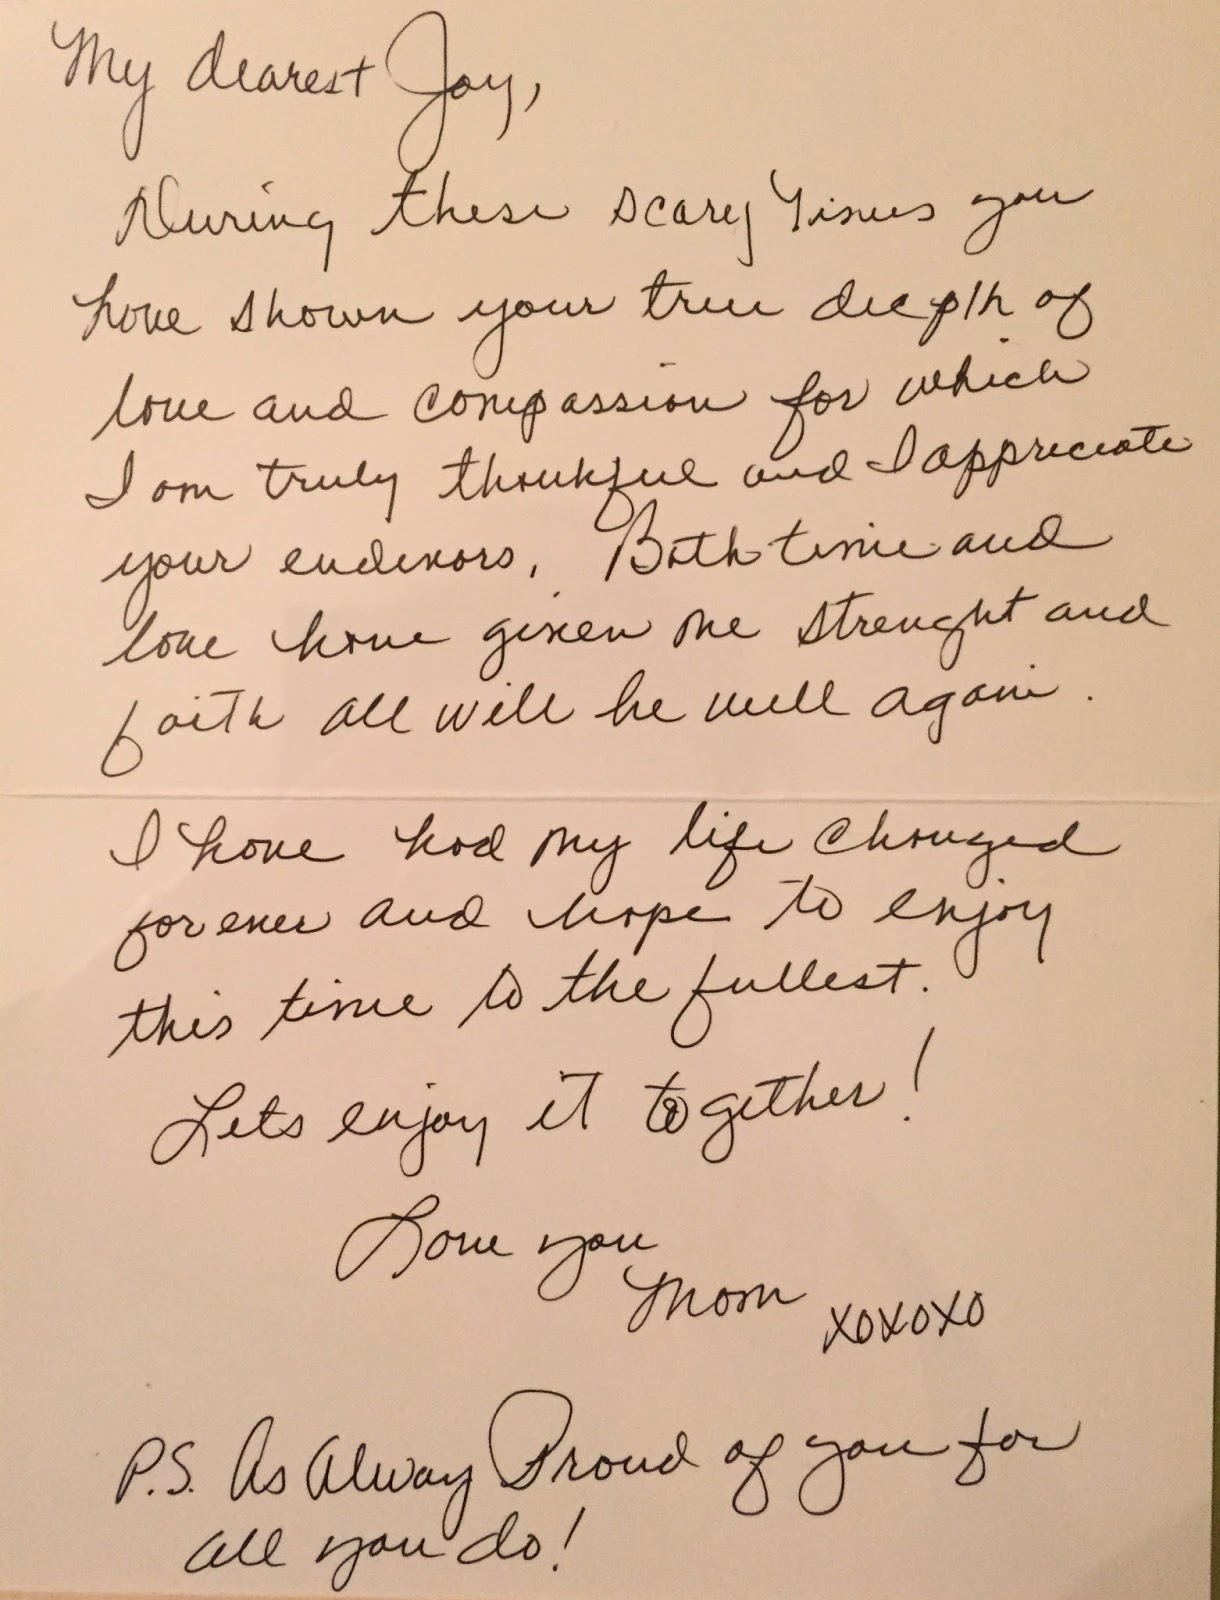 My dearest Joy,
During these scary times you
have shown your true deepth of
love and compassion for which
I am truly thankful and I appreciate
your endevors. Both time and
love have given me strenght and
faith all will be well again.
I have had my life changed
forever and hope to enjoy
this time to the fullest.
Lets enjoy it together!
Love you
Mom xoxoxo
P.S. As Alway Proud of you for
all you do!